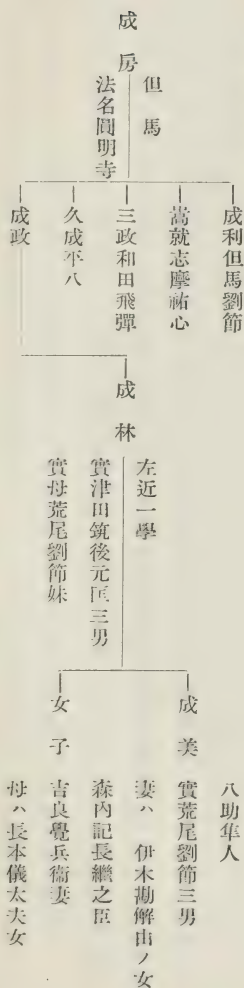 成房
但馬
法名圓明寺
成利但馬劉節
嵩就志摩祐心
三政和田飛彈
久成平八
成政
成林
左近一學
實津田筑後元匡三男
實母荒尾劉節妹
成美
八助隼人
實荒尾劉節三男
妻ハ 伊木勘解由ノ女
女子
森內記長繼之臣
吉良覺兵衞妻
母ハ長本儀太夫女